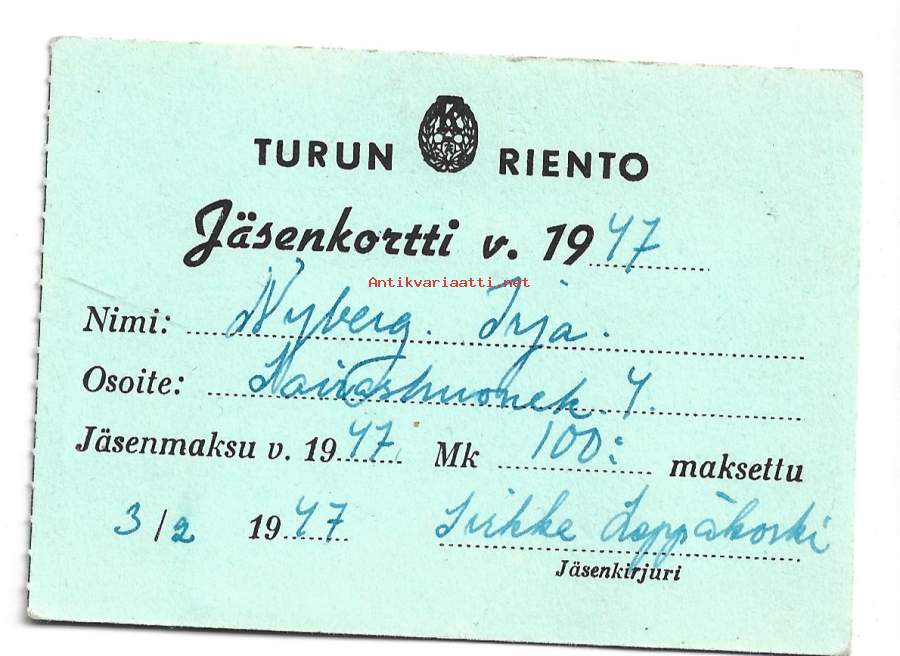 K
TURUN RIENTO
Jäsenkortti v. 1947
Antikvariaatti.net
Nimi: Nyberg. Irja.
Osoite: 4.
Jäsenmaksu v. 1947. Mk 100: maksettu
3/2 1947 Sirkka Leppäkoski
Jäsenkirjuri